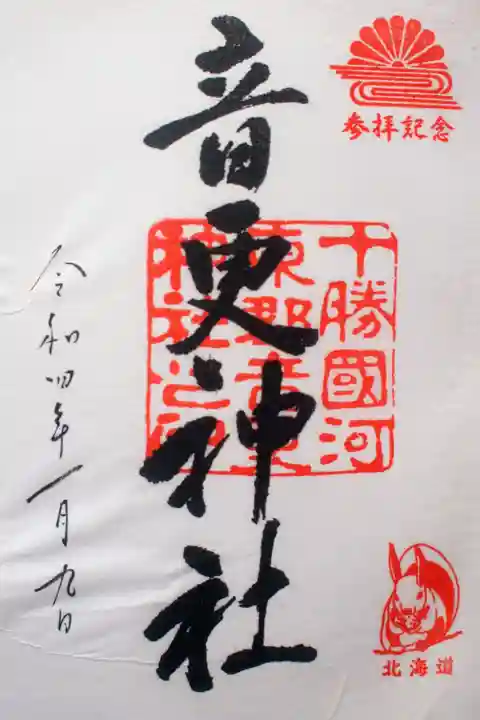 参拝記念
音更神社
十勝國河
東郡音更
神社之印
令和四年一月九日
北海道